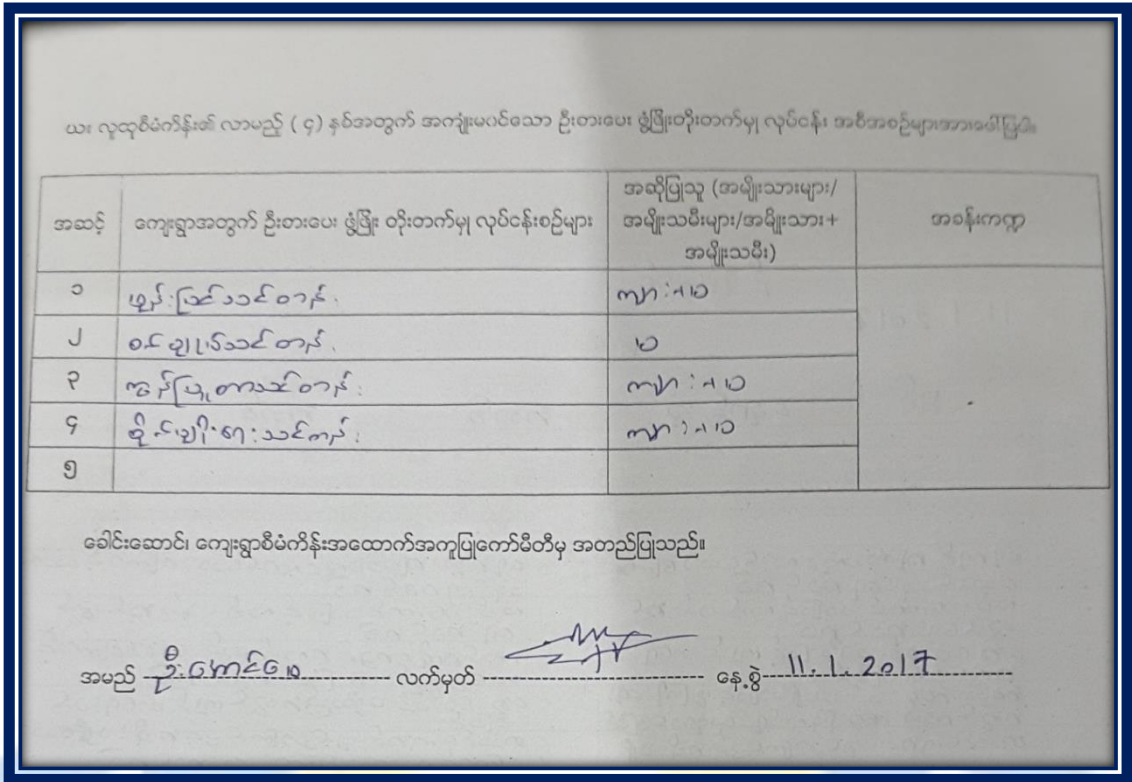 ယး လူထုစီမံကိန်း၏ လာမည့် ( ၄ ) နှစ်အတွက် အကျုံးမဝင်သော ဦးစားပေး ဖွံ့ဖြိုးတိုးတက်မှု လုပ်ငန်း အစီအစဉ်များအားဖေါ်ပြပါ။
အဆင့်
ကျေးရွာအတွက် ဦးစားပေး ဖွံ့ဖြိုး တိုးတက်မှု လုပ်ငန်းစဉ်များ
အဆိုပြုသူ (အမျိုးသားများ/
အမျိုးသမီးများ/အမျိုးသား+
အမျိုးသမီး)
အခန်းကဏ္ဍ
၁ ဖုန်းပြင်သင်တန်း ကျား+မ
၂ စက်ချုပ်သင်တန်း မ
၃ ကွန်ပြူတာသင်တန်း ကျား+မ
၄ စိုက်ပျိုးရေးသင်တန်း ကျား+မ
၅
ခေါင်းဆောင်၊ ကျေးရွာစီမံကိန်းအထောက်အကူပြုကော်မီတီမှ အတည်ပြုသည်။
အမည် ဦးအောင်ဖေ လက်မှတ် နေ့စွဲ 11.1.2017